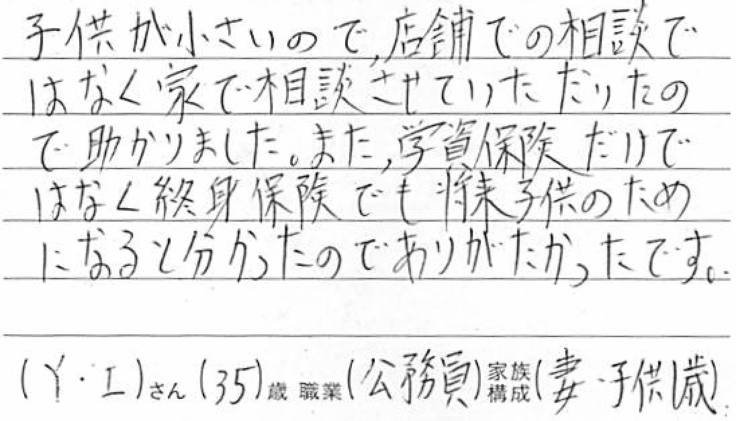 子供が小さいので、店舗での相談で
はなく家で相談させていただいたの
で助かりました。また、学資保険だけで
はなく終身保険でも将来子供のため
になると分かったのでありがたかったです。
(Y・I)さん(35)歳 職業(公務員)家族構成(妻・子供1歳)